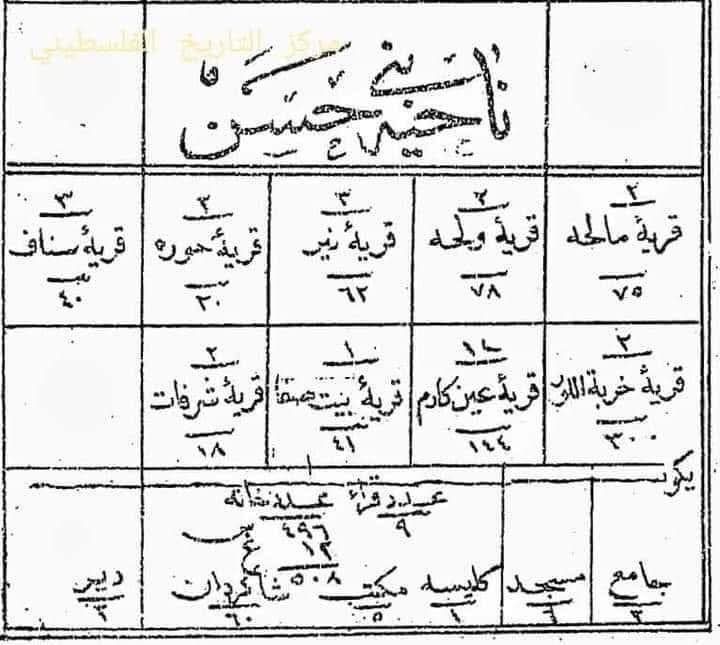 مركز التاريخ الفلسطيني
ناحية بني حسن
٢ ٢ ٣ ٢ ٣
قرية مالحه قرية ولجه قرية قرية جوره قرية سطاف
٧٥ ٧٨ ٦٢ ٢٠ ٤٠
٢ ١ ٢
قرية خربة اللوز قرية عين كارم قرية بيت قرية شرفات
٣٠٠ ١٤٤ ٤١ ١٨
يكون
عدد قرا عدد خانه
٩ ٤٩٦
١٢
٥٠٨
جامع مسجد كليسه مكتب شاكردان دير
٣ ٦ ١ ٥ ٦٠ ٢